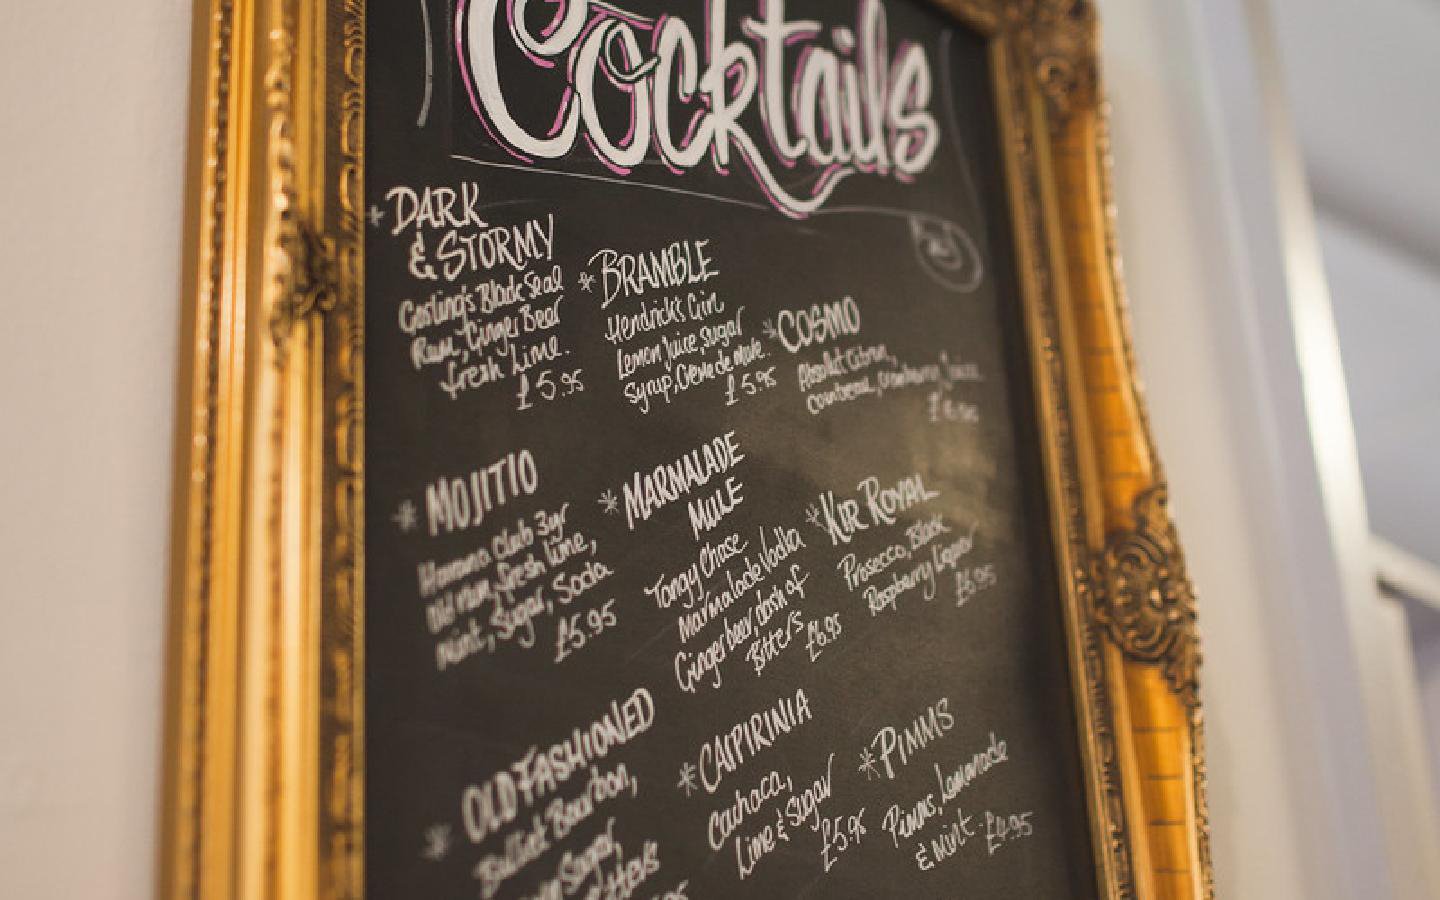 Cocktails
* DARK
& STORMY
Gosling's Black Seal
Rum, Ginger Beer
fresh Lime.
£5.95
* BRAMBLE
Hendrick's Gin
Lemon Juice, Sugar
Syrup, Creme de Mure.
£5.95
* COSMO
Absolut Citron,
Cointreau, Cranberry Juice
* MOJITIO
Havana Club 3yr
Old Rum, fresh lime,
mint, Sugar, Soda
£5.95
* MARMALADE
MULE
Tangy Chase
Marmalade Vodka
Ginger beer, dash of
Bitters £6.95
* KIR ROYAL
Prosecco, Black
Raspberry Liquor
£6.95
* OLD FASHIONED
Bulliet Bourbon,
Sugar,
* CAIPIRINIA
Cachaca,
Lime & Sugar
£5.95
* PIMMS
Pimms, Lemonade
& Mint. £4.95